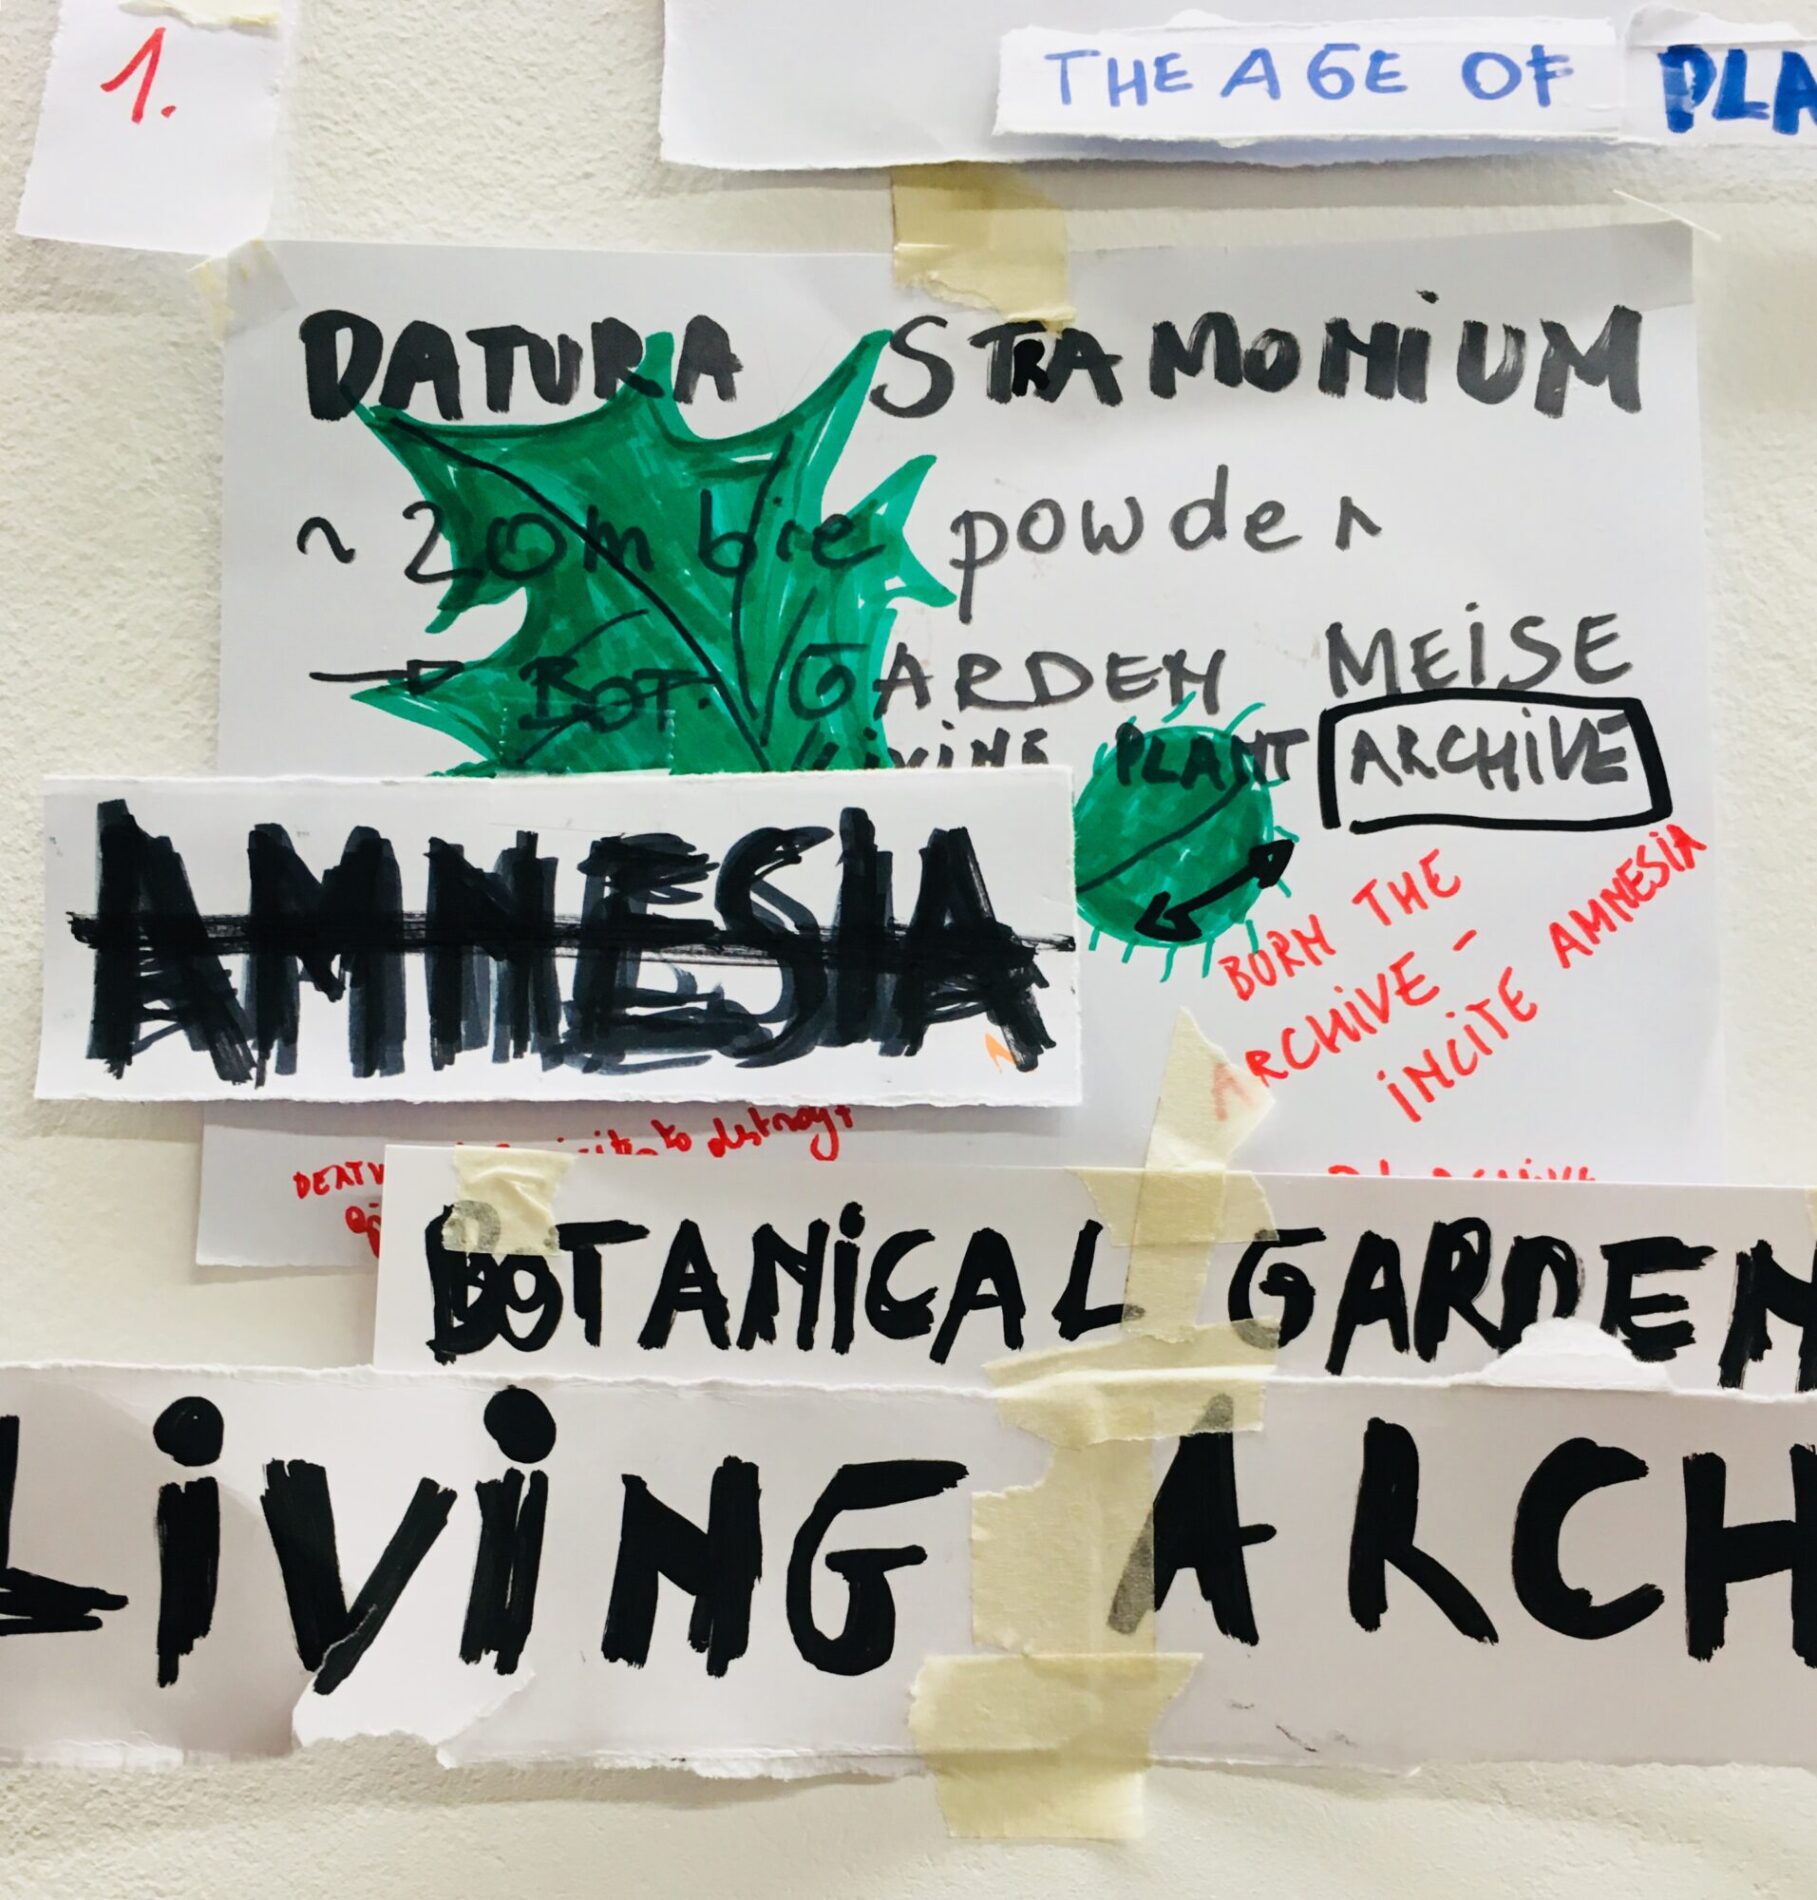 1.
THE AGE OF PLA
DATURA STRAMONIUM
~ zombie powder
→ BOT. GARDEN MEISE
LIVING PLANT ARCHIVE
AMNESIA
BURN THE
ARCHIVE -
INCITE AMNESIA
to destroy
BOTANICAL GARDEN
LIVING ARCH